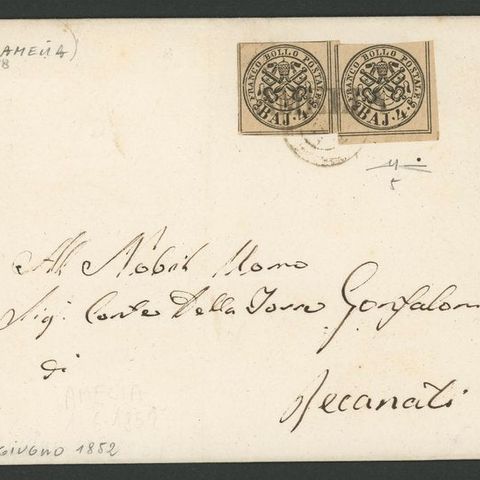 AMELIA)
8
FRANCO BOLLO POSTALE BAJ. 4.
FRANCO BOLLO POSTALE BAJ. 4.
4
5
Al Nobil Uomo
Sig. Conte Della Torre Gonfalon
di
Recanati
AMELIA
1852
GIUGNO 1852